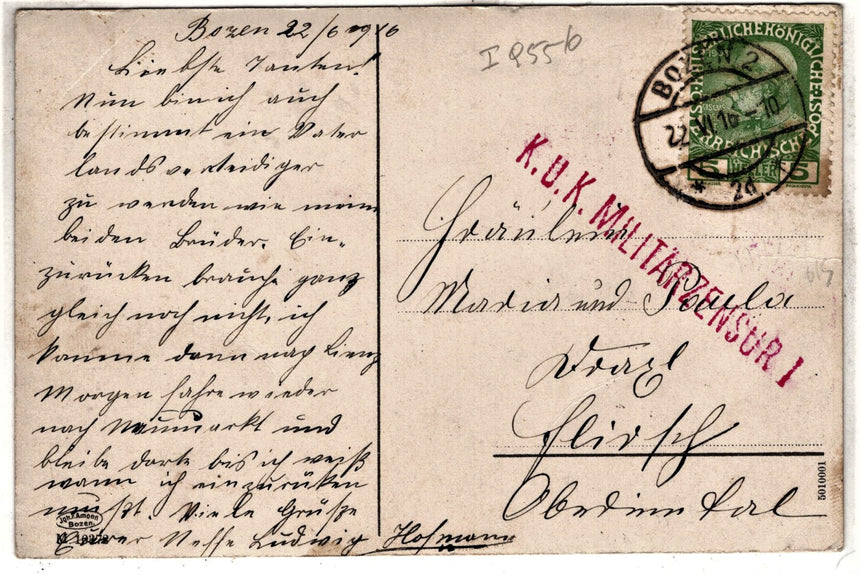 Bozen 22/6 1916
Liebste Tanten!
Nun bin ich auch
bestimmt ein Vater
landsverteidiger
zu werden wie meine
beiden Brüder. Ein-
zurücken brauche ganz
gleich noch nicht, ich
komme dann nach Lienz
Morgen fahre wieder
nach Neumarkt und
bleibe dorte bis ich weiß
wann ich einzurüken
mußt. Viele Grüße
Eurer Neffe Ludwig Hofmann
Joh. F. Amonn
Bozen.
I 955-b
BOZEN 2
22 VI 16 - 10
* 2d *
KAISERLICHE KÖNIGLICHE
ÖSTERREICHISCHE
5 HELLER 5
K.U.K. MILITÄRZENSUR I
Fräulein
Maria und Paula
Draxl
Flirsch
Oberinntal
5010001